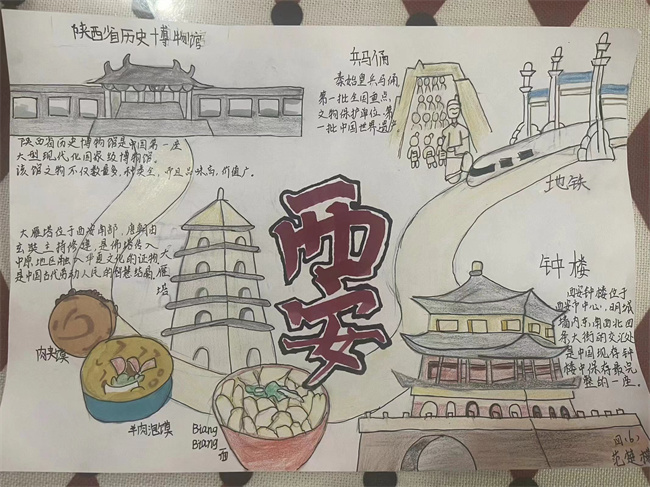 陕西省历史博物馆
陕西省历史博物馆是中国第一座
大型现代化国家级博物馆。
该馆文物不仅数量多,种类全,而且品味高,价值广。
兵马俑
秦始皇兵马俑,
第一批全国重点
文物保护单位,第
一批中国世界遗产。
地铁
大雁塔位于西安南部,唐朝由
玄奘主持修建,是佛塔传入
中原地区融入华夏文化的证物
是中国古代劳动人民的智慧结晶
大
雁
塔
西安
钟楼
西安钟楼位于
西安市中心,明城
墙内东南西北四
条大街的交汇处
是中国现存钟
楼中保存最完
整的一座。
肉夹馍
羊肉泡馍
Biang
Biang
面
四.(6)